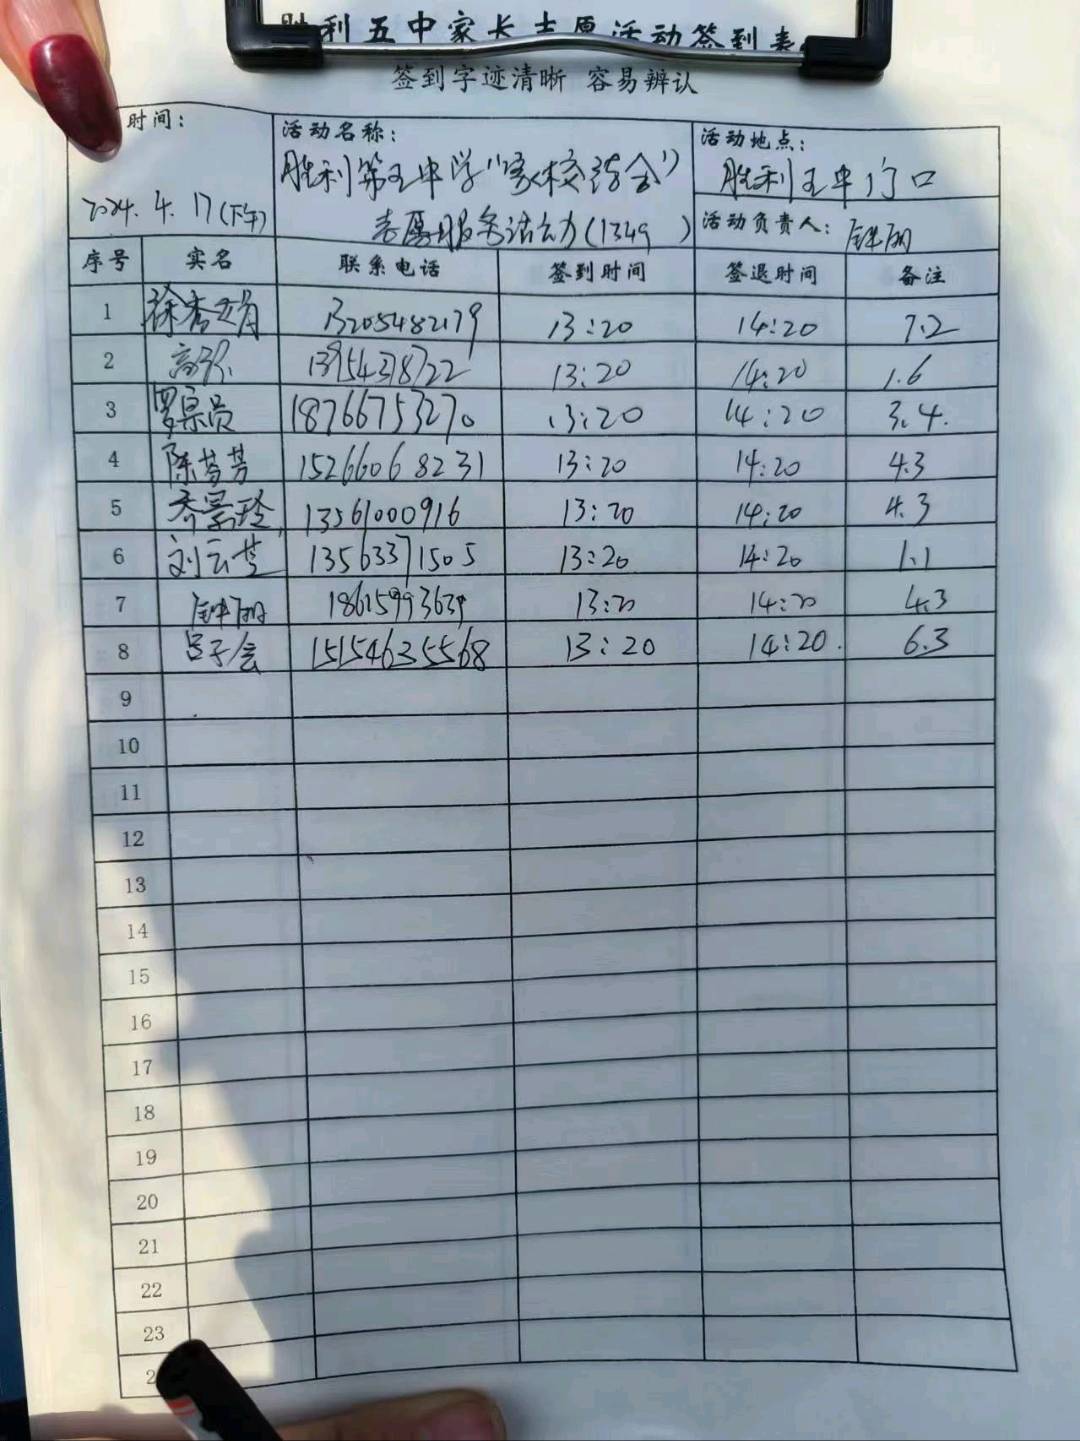 胜利五中家长志愿活动签到表
签到字迹清晰 容易辨认
时间:
2024.4.17(下午)
活动名称:
胜利第五中学"家校结合"
志愿服务活动(1349 )
活动地点:
胜利五中门口
活动负责人:
序号 实名 联系电话 签到时间 签退时间 备注
1 徐秀娟 13205482179 13:20 14:20 7.2
2 13954378722 13:20 14:20 1.6
3 18766753270 13:20 14:20 3.4.
4 陈芬芳 15266068231 13:20 14:20 4.3
5 乔景玲 13561000916 13:20 14:20 4.3
6 刘云芝 13563371505 13:20 14:20 1.1
7 18615993639 13:20 14:20 4.3
8 吕子会 15154635568 13:20 14:20. 6.3
9
10
11
12
13
14
15
16
17
18
19
20
21
22
23